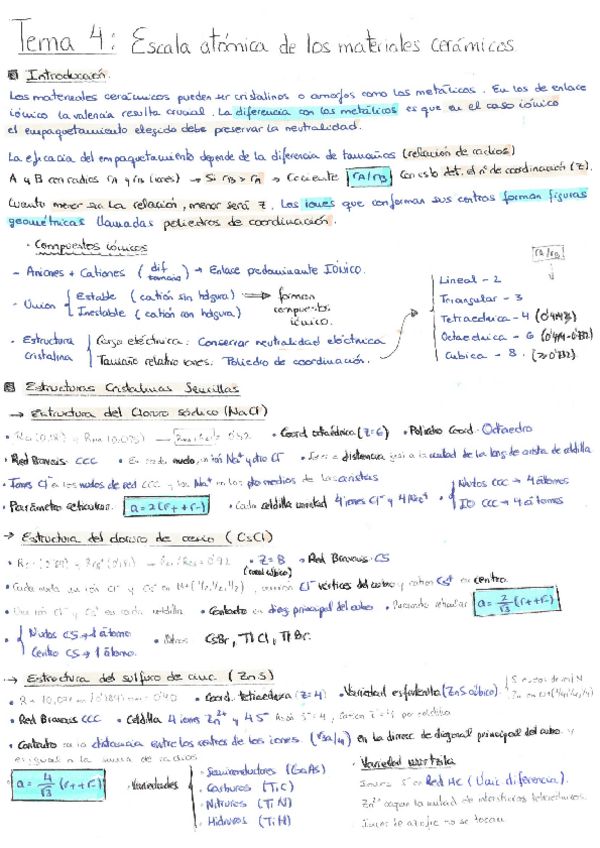 Tema 4: Escala atómica de los materiales cerámicos
Introducción.
Los materiales cerámicos pueden ser cristalinos o amorfos como los metálicos. En los de enlace
iónico la valencia resulta crucial. La diferencia con los metálicos es que en el caso iónico
el empaquetamiento elegido debe preservar la neutralidad.
La eficacia del empaquetamiento depende de la diferencia de tamaños (relación de radios)
A y B con radios rA y rB (iones) → Si rB > rA → Cociente rA/rB Con esto det. el nº de coordinación (Z).
Cuanto menor sea la relación, menor será Z. Los iones que conforman sus centros forman figuras
geométricas llamadas poliedros de coordinación.
· Compuestos iónicos
rA/rB
- Aniones + Cationes (dif tamaño) → Enlace predominante IÓNICO.
· Unión
Estable (catión sin holgura)
Inestable (catión con holgura)
forman compuesto iónico.
· Estructura cristalina
Carga eléctrica: Conservar neutralidad eléctrica
Tamaño relativo iones. Poliedro de coordinación.
Lineal - 2
Triangular - 3
Tetraédrica - 4
Octaédrica - 6 (0'414-0'732)
Cúbica - 8 (≥0'732)
Estructuras Cristalinas Sencillas
→ Estructura del Cloruro sódico (NaCl)
· Coord. octaédrica (Z=6) · Poliedro Coord. Octaedro
· Red Bravais CCC · En cada nudo, un ión Na+ y otro Cl-
· Iones Cl- a los nudos de red CCC y los Na+ en los pto medios de las aristas
· Parámetro reticular: a=2(r+ + r-) · Cada celdilla unidad 4 iones Cl- y 4 Na+
Nudos CCC → 4 átomos
IO CCC → 4 átomos
→ Estructura del cloruro de cesio (CsCl)
· Z=8 (coord. cúbica) → Red Bravais CS
Cl- vértices del cubo y catión Cs+ en centro.
· Contacto en diag. principal del cubo · Parámetro reticular a= 2/√3 (r+ + r-)
Nudos CS → 1 átomo
Centro CS → 1 átomo.
· Otros CsBr, TlCl, TlBr.
→ Estructura del sulfuro de cinc (ZnS)
· Coord. tetraédrica (Z=4) · Variedad esfalerita (ZnS cúbico).
· Red Bravais CCC · Celdilla 4 iones Zn2+ y 4 S-
· Contacto en la distancia entre los centros de los iones (√3a/4) en la direcc. de diagonal principal del cubo y
es igual a la suma de radios
a= 4/√3 (r+ + r-)
· Variedades
· Semiconductores (GaAs)
· Carburos (TiC)
· Nitruros (TiN)
· Hidruros (TiH)
· Variedad wurtzita
Iones S en Red HC (Única diferencia).
Zn2+ ocupa la mitad de intersticios tetraédricos.
Iones de azufre no se tocan.